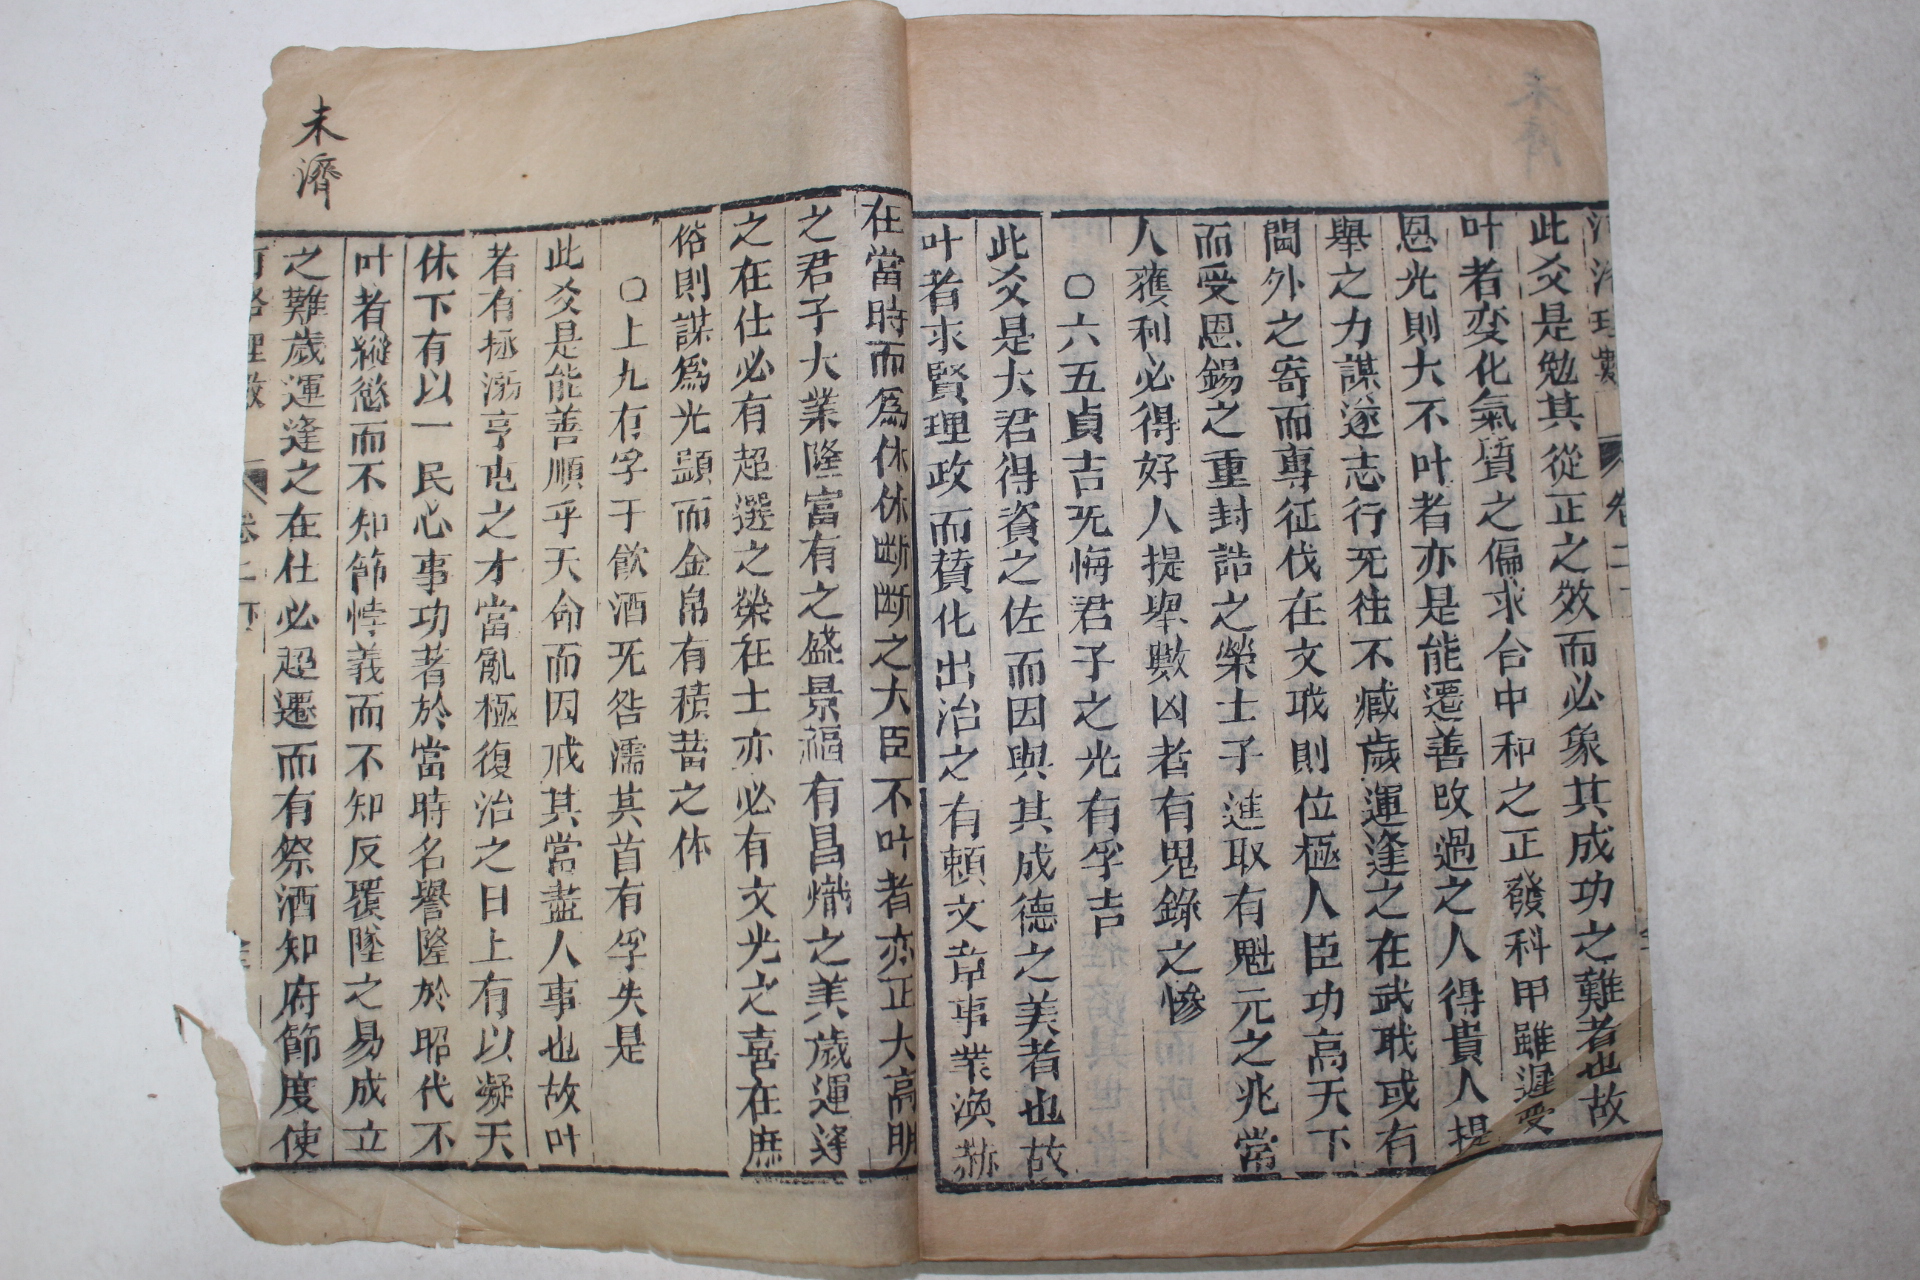 河洛理數
卷二
此爻是勉其從正之效而必象其成功之難者也故
叶者変化氣質之偏求合中和之正發科甲雖遲受
恩光則大不叶者亦是能遷善改過之人得貴人提
舉之力謀遂志行旡往不臧歲運逢之在武戢或有
閫外之寄而專征伐在文戢則位極人臣功高天下
而受恩錫之重封誥之榮士子進取有魁元之兆常
人獲利必得好人提舉數凶者有鬼錄之慘
○六五貞吉旡悔君子之光有孚吉
此爻是大君得資之佐而因與其成德之美者也故
叶者求賢理政而賛化出治之有頼文章事業渙赫
未濟
在當時而為休休断断之大臣不叶者亦正大高明
之君子大業隆富有之盛景福有昌熾之美歲運逢
之在仕必有超選之榮在士亦必有文光之喜在庶
俗則謀為光顕而金帛有積畜之休
○上九有孚于飲酒旡咎濡其首有孚失是
此爻是能善順乎天命而因戒其當盡人事也故叶
者有拯溺亨屯之才當亂極復治之日上有以凝天
休下有以一民心事功著於當時名譽隆於昭代不
叶者縱慾而不知節悖義而不知反覆墜之易成立
之難歲運逢之在仕必超遷而有祭酒知府節度使